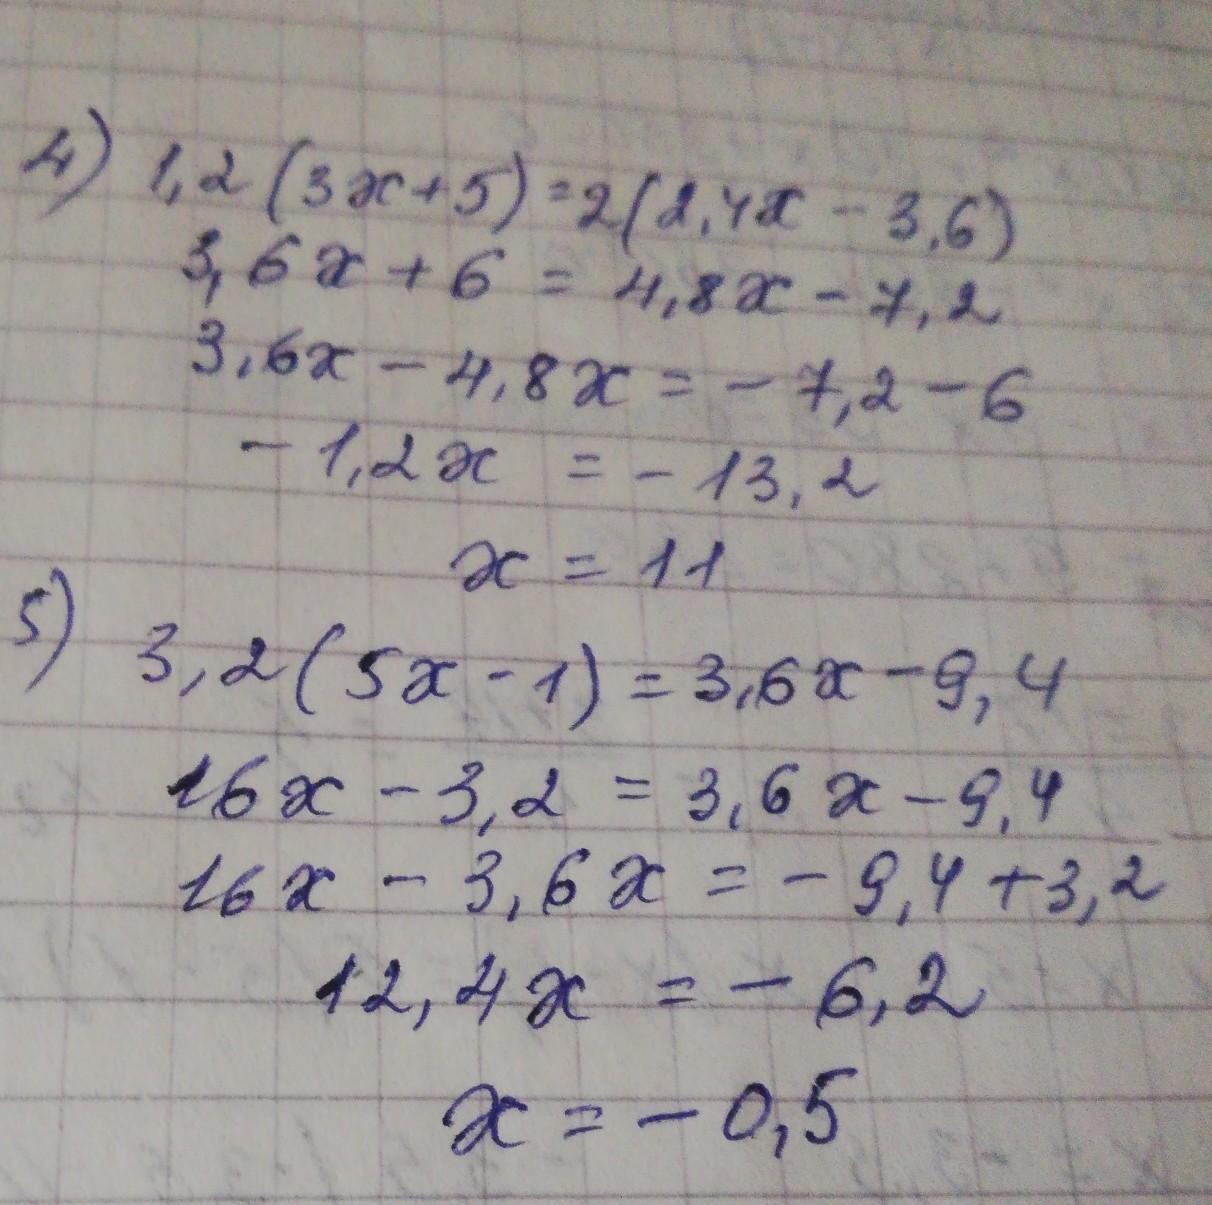 4) 1,2(3x+5)=2(2,4x-3,6)
3,6x+6=4,8x-7,2
3,6x-4,8x=-7,2-6
-1,2x=-13,2
x=11
5) 3,2(5x-1)=3,6x-9,4
16x-3,2=3,6x-9,4
16x-3,6x=-9,4+3,2
12,4x=-6,2
x=-0,5